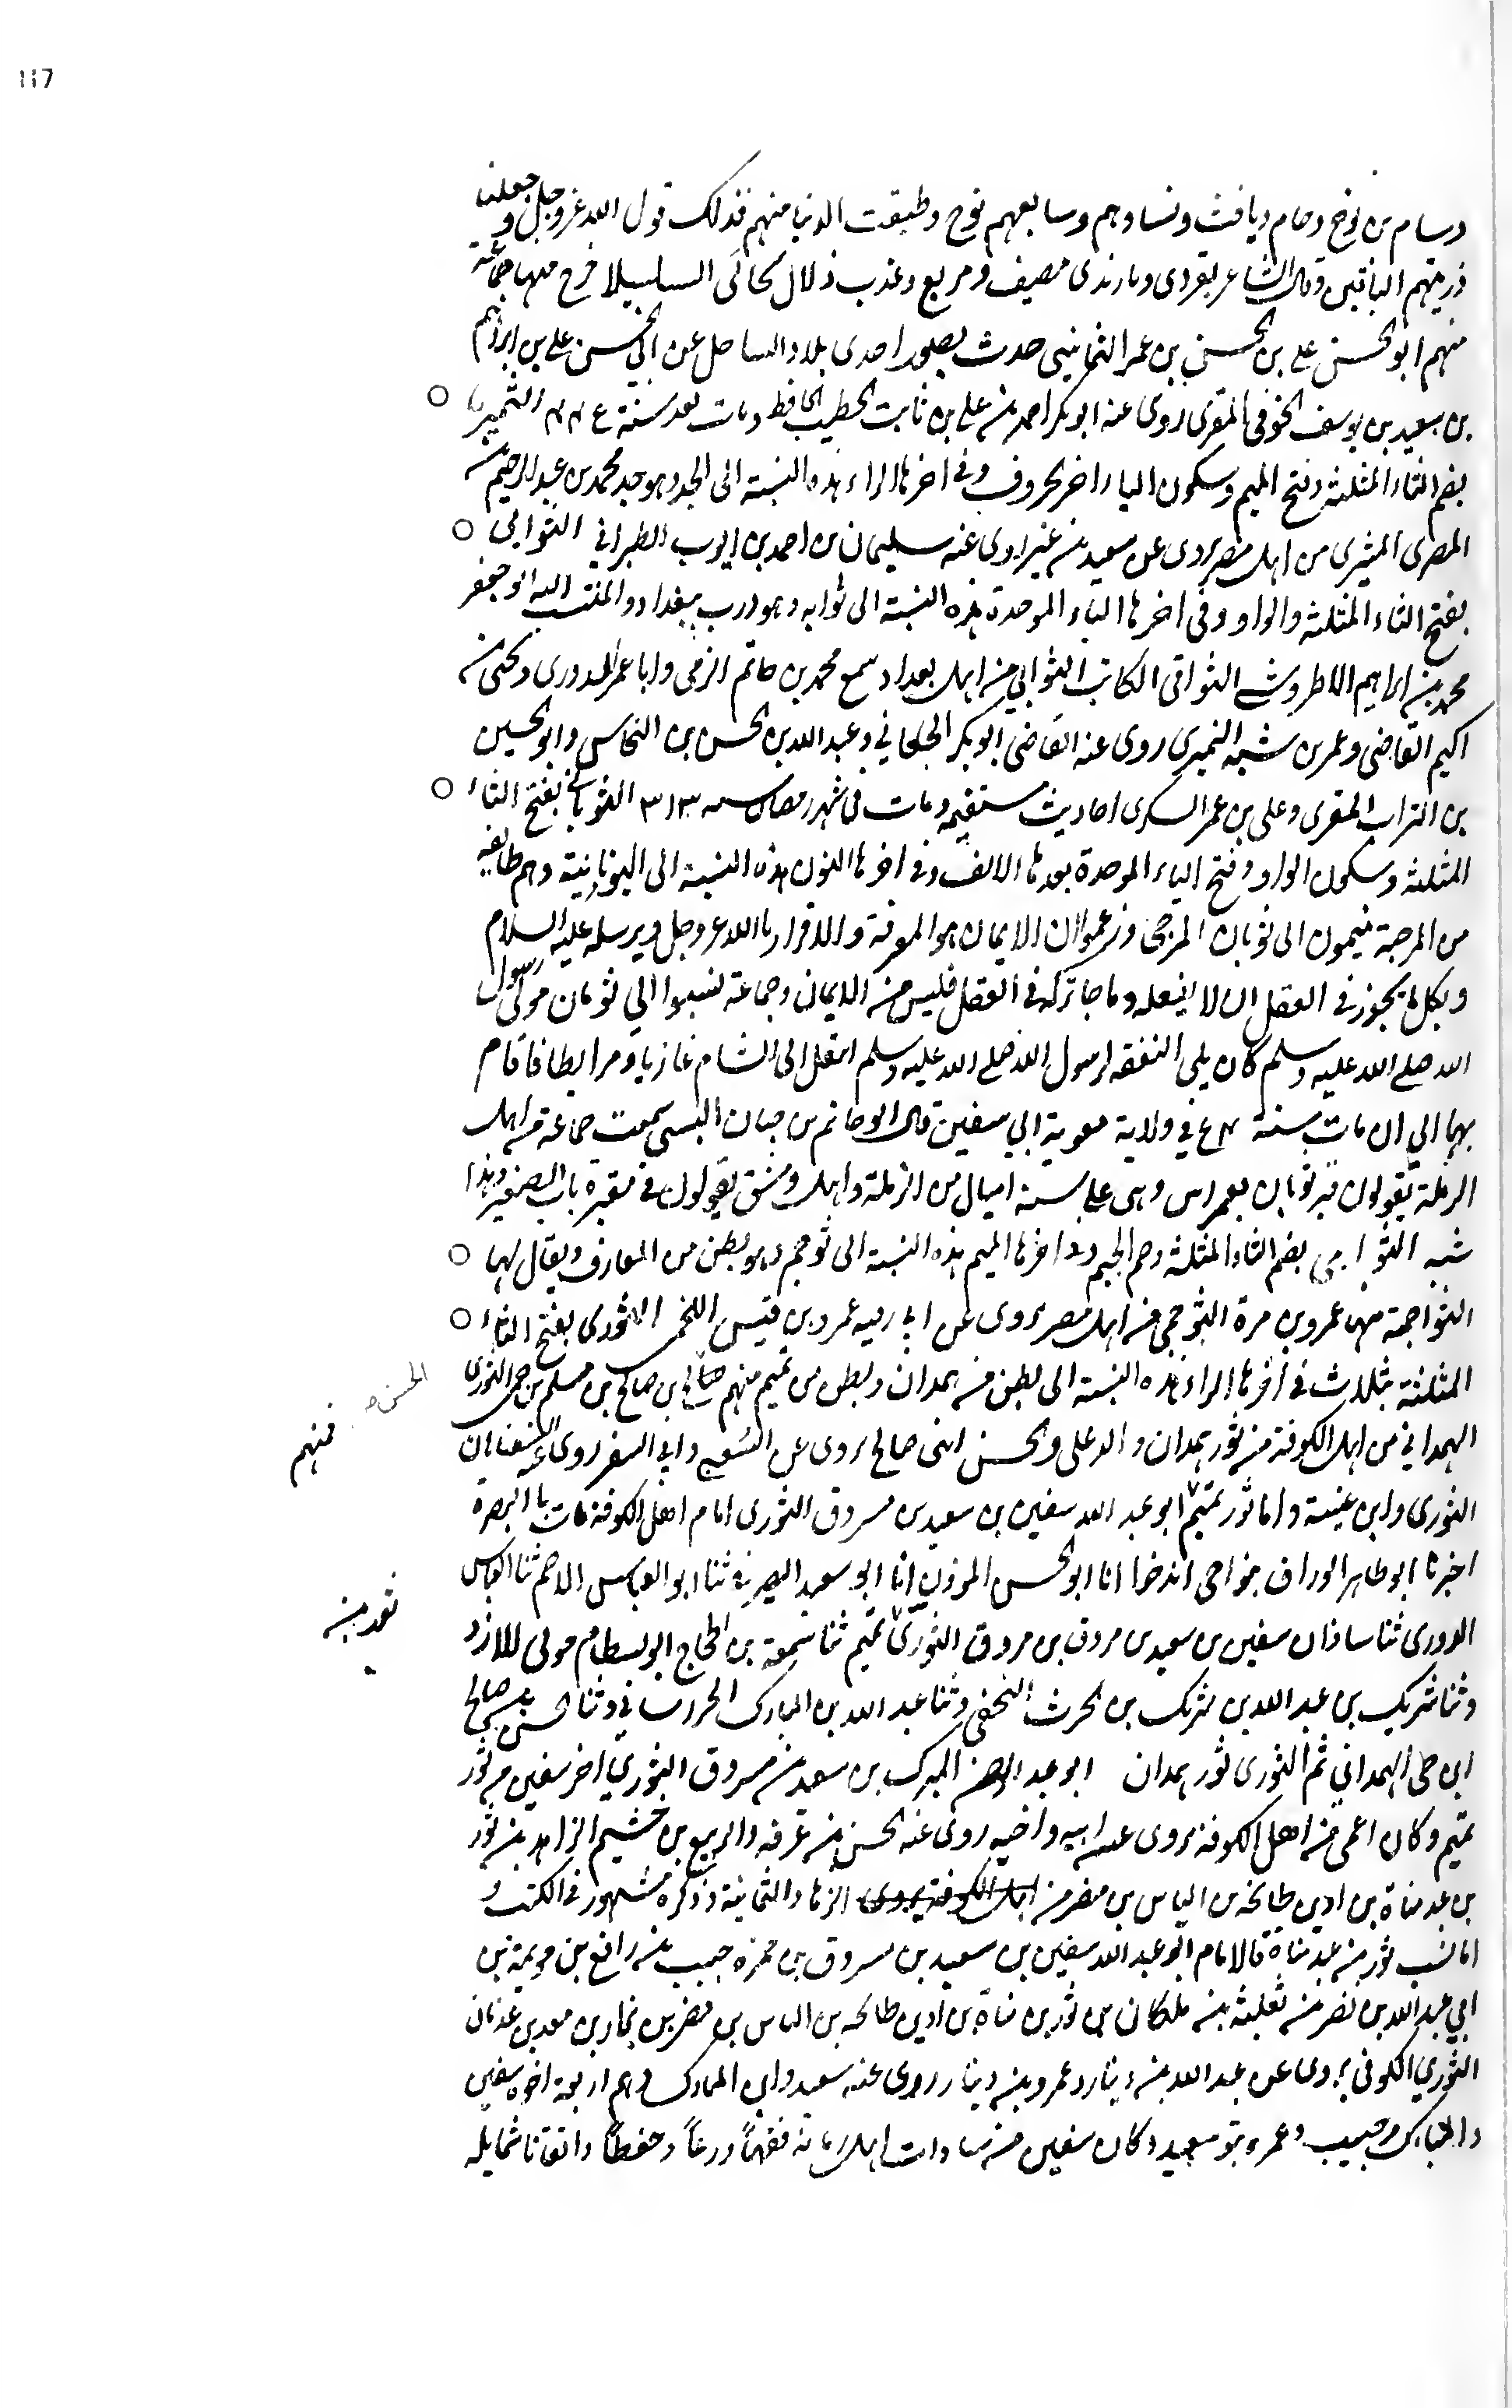 117
وسام بن نوح وحام ويافث ونساوهم وسابعهم نوح وطبقت الدنيا منهم فذلك قول الله عز وجل وجعلنا
ذريتهم الباقين وقال الشاعر بقردى وبازبدى مصيف ومربع وعذب زلال يحاكى السلسبيلا خرج منها جماعة
منهم ابو الحسن على بن الحسن بن عمر الثمانينى حدث بصور احدى بلاد الساحل عن ابى الحسن على بن ابراهيم
بن سعيد بن يوسف الحوفى المقرى روى عنه ابو بكر احمد بن على بن ثابت الخطيب الحافظ ومات بعد سنة الثميرى
بضم الثاء المثلثة وفتح الميم وسكون الياء اخر الحروف وفى اخرها الراء هذه النسبة الى الجد وهو جد محمد بن عبد الرحيم بن
المصرى الثميرى من اهل مصر يروى عن سعيد بن عفير روى عنه سليمان بن احمد بن ايوب الطبرانى الثوابى
بفتح الثاء المثلثة والواو وفى اخرها الباء الموحدة هذه النسبة الى ثوابه وهو درب ببغداد والمنتسب اليه ابو جعفر
محمد بن ابراهيم الاطروش الكاتب الثوابى من اهل بغداد سمع محمد بن حاتم الزمى وابا عمر الدورى ويحيى بن
اكثم القاضى وعمر بن شبه النميرى روى عنه القاضى ابو بكر الجعابى وعبد الله بن الحسن بن النحاس وابو الحسين
بن البواب المقرى وعلى بن عمر السكرى احاديث مستقيمة ومات فى شهر رمضان سنه ٣١٣ الثوبانى بفتح الثاء
المثلثة وسكون الواو وفتح الباء الموحدة بعدها الالف وفى اخرها النون هذه النسبة الى الثوبانية وهم طايفه
من المرجية ينتمون الى ثوبان المرجى وزعموا ان الايمان هو المعرفة والاقرار بالله عز وجل وبرسله عليه السلام
وبكل ما يجوز فى العقل ان لا يفعله وما جاز تركه فى العقل فليس من الايمان وجماعة نسبوا الى ثوبان مولى رسول
الله صلى الله عليه وسلم كان يلى النفقه لرسول الله صلى الله عليه وسلم انتقل الى الشام غازيا ومرابطا فاقام
بها الى ان مات سنة فى ولاية معوية ابى سفين قال ابو حاتم بن حبان البستى سمعت جماعة من اهل
الرملة يقولون قبر ثوبان بعمواس وهى على ستة اميال من الرملة واهل دمشق يقولون فى مقبرة باب الصغير وهذا
شبه الثواجمى بضم الثاء المثلثة وضم الجيم وفى اخرها الميم هذه النسبة الى ثوجم وهو بطن من المعافر ويقال لها
الثواجمة منها عمرو بن مرة الثوجمى من اهل مصر يروى عن ابى عمرو بن قيس اللخمى الثورى بفتح الثاء
المثلثة بثلاث فى اخرها الراء هذه النسبة الى بطن من همدان وبطن من تميم منهم صالح بن صالح بن مسلم بن حى الثورى
الهمدانى من اهل الكوفة من ثور همدان والد على والحسن ابنى صالح يروى عن الشعبى وابى السفر روى عنه السفيانان
الثورى وابن عيينة واما ثور تميم ابو عبد الله سفين بن سعيد بن مسروق الثورى امام اهل الكوفة مات بالبصرة
اخبرنا ابو طاهر الوراق بنواحى اندخوا انا ابو الحسن الموذن انا ابو سعيد الصيرفى ثنا ابو العباس الاصم ثنا العباس
الدورى ثنا شاذان سفين بن سعيد بن مروق بن مروق الثورى تميم ثنا شعبة بن الحجاج ابو بسطام مولى للازد
وثنا شريك بن عبد الله بن شريك بن الحرث النخعى وثنا عبد الله بن المبارك الخراسانى وثنا الحسن بن صالح
ابن حى الهمدانى ثم الثورى ثور همدان ابو عبد الرحمن المبرك بن سعد بن مسروق الثورى اخو سفين من ثور
تميم وكان اعمى من اهل الكوفة يروى عن ابيه واخيه روى عنه الحسن بن عرفه والربيع بن خثيم الزاهد من ثور
بن عبد مناة بن اد بن طابخه بن الياس بن مضر من اهل الكوفة يروى الزهاد الثمانية وذكره مشهور فى الكتب و
اما نسب ثور بن عبد مناة فالامام ابو عبد الله سفين بن سعيد بن مسروق بن حمزه حبيب بن رافع بن موهبة بن
ابى عبد الله بن نصر بن ثعلبة بن ملكان بن ثور بن مناة بن اد بن طابخه بن الياس بن مضر بن نزار بن معد بن عدنان
الثورى الكوفى يروى عن عبد الله بن دينار وعمرو بن دينار روى عنه سعيد وابن المبارك وهم اربعة اخوه سفين
والمبارك وحبيب وعمر بنو سعيد وكان سفين من سادات اهل زمانه فقها وورعا وحفظا واتقانا شمايله
الحسن ص
فمنهم
نعد من